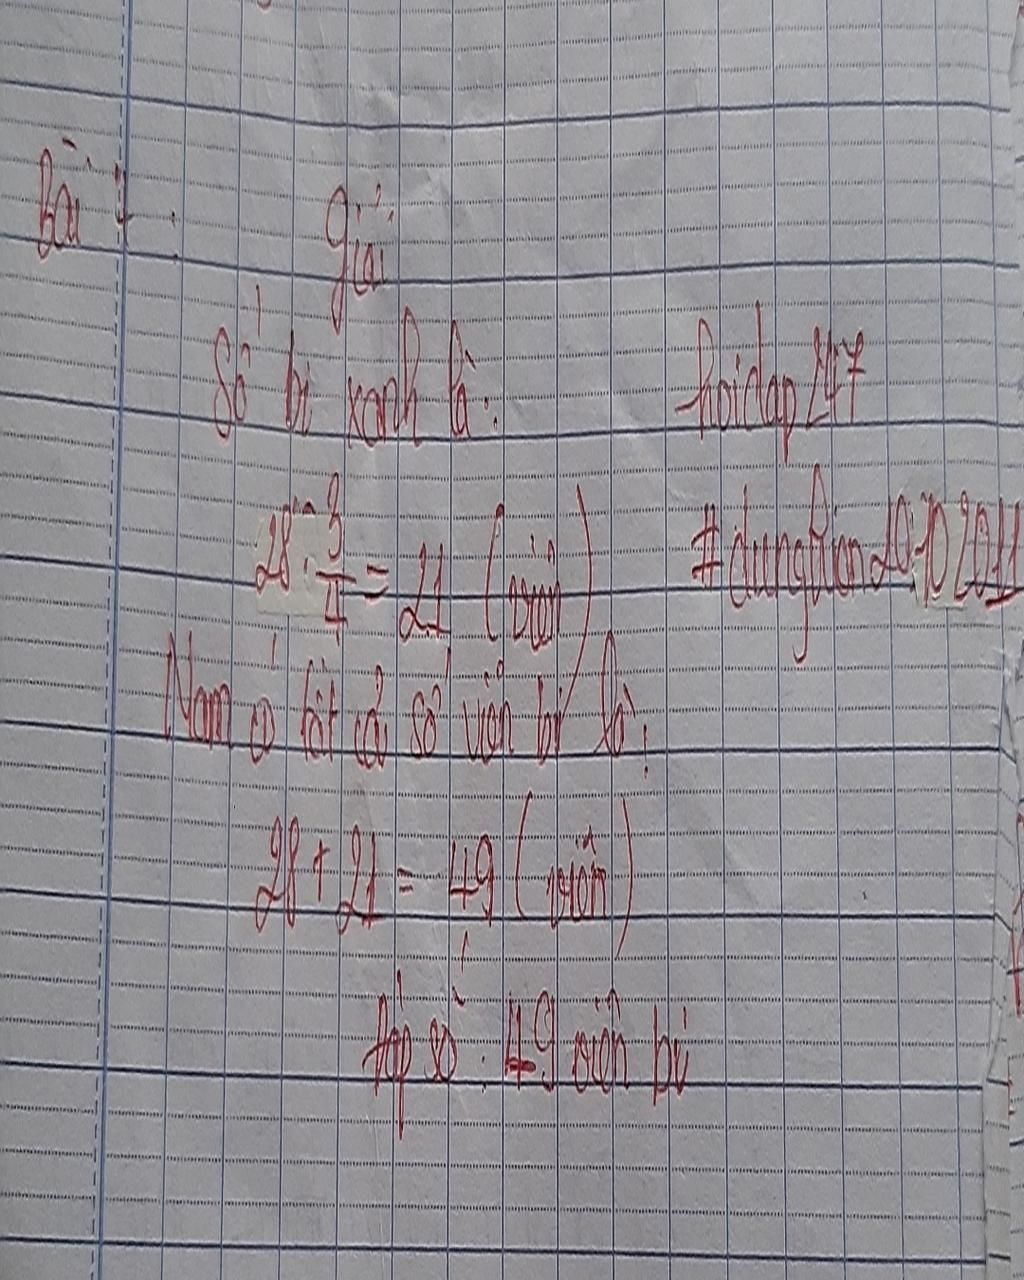 Bài 4:
Giải
Số bi xanh là:
hoidap247
28 . 3/4 = 21 (viên)
Nam có tất cả số viên bi là:
28 + 21 = 49 (viên)
Đáp số: 49 viên bi